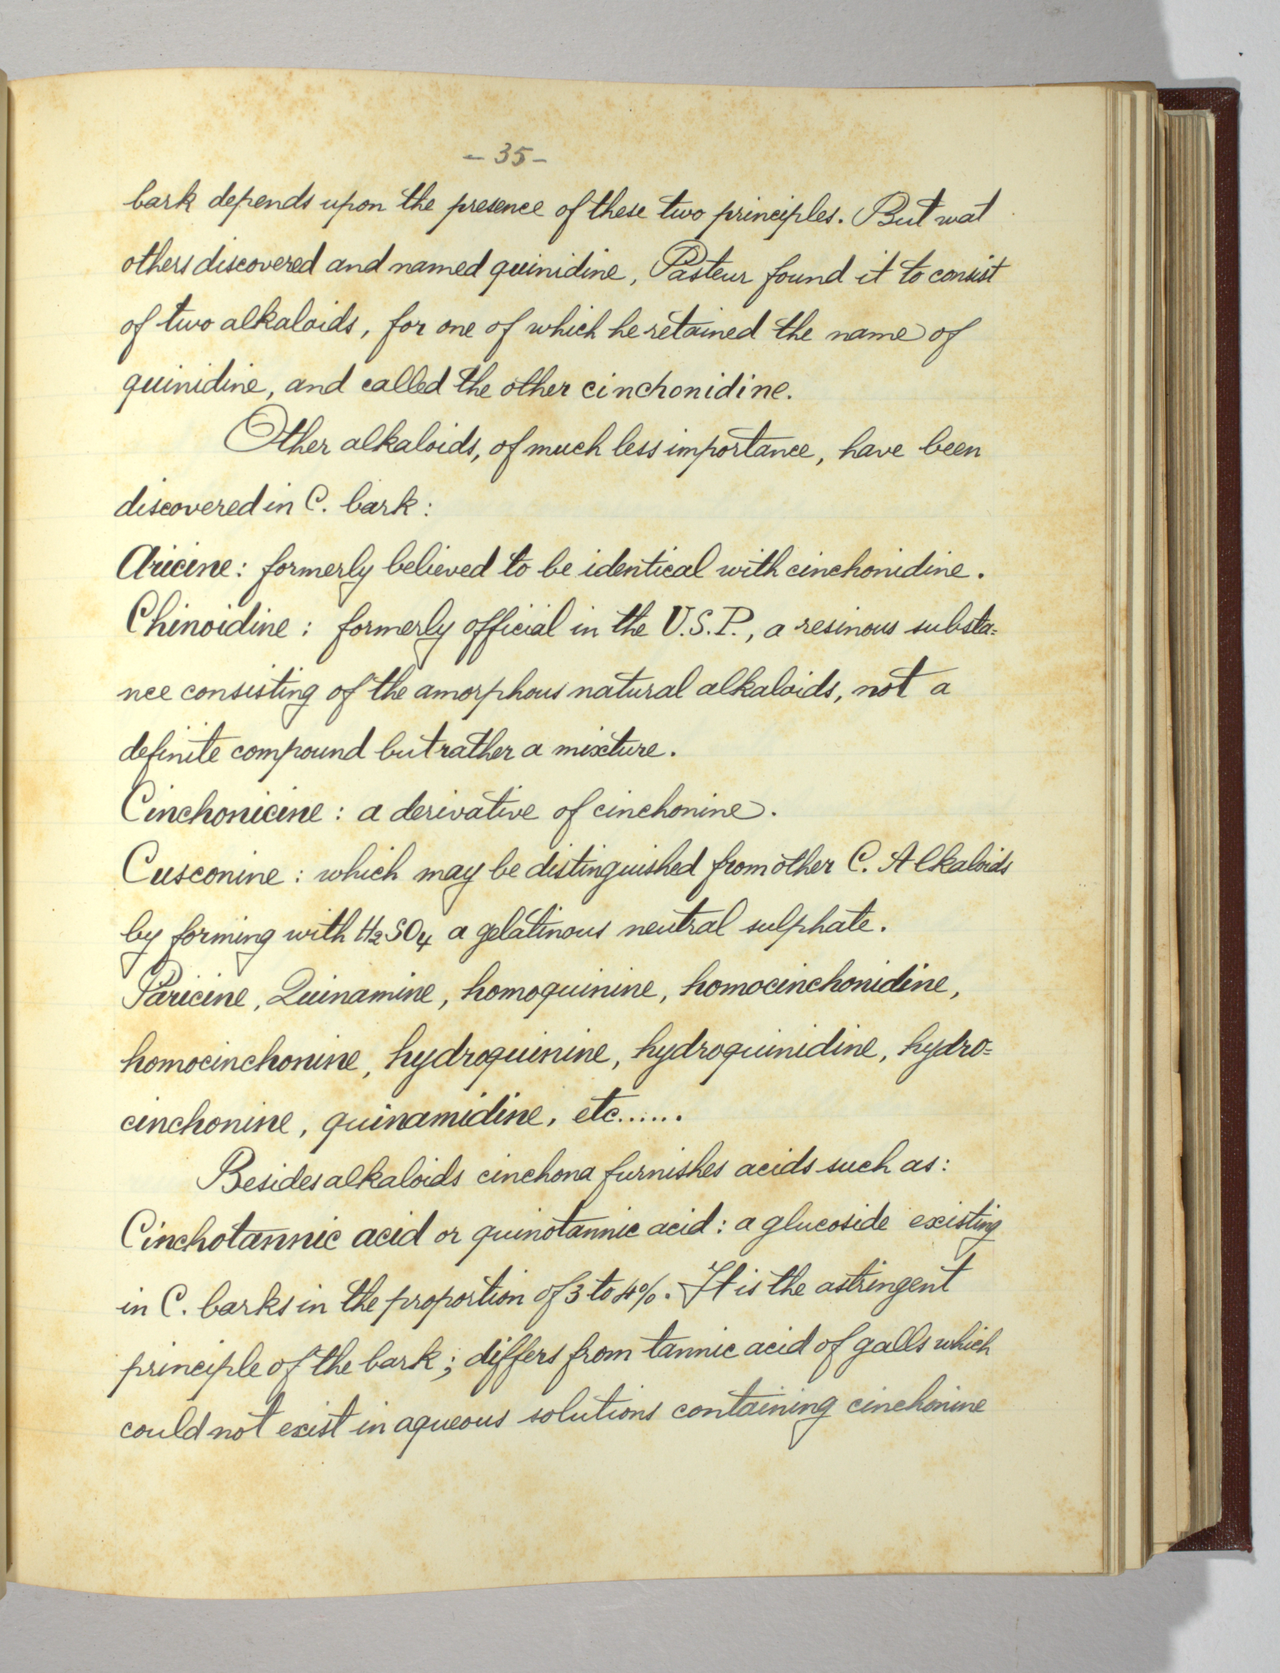 - 35 -
bark depends upon the presence of these two principles. But wat
others discovered and named quinidine, Pasteur found it to consist
of two alkaloids, for one of which he retained the name of
quinidine, and called the other cinchonidine.
Other alkaloids, of much less importance, have been
discovered in C. bark:
Aricine: formerly believed to be identical with cinchonidine.
Chinoidine: formerly official in the U.S.P., a resinous substa=
nce consisting of the amorphous natural alkaloids, not a
definite compound but rather a mixture.
Cinchonicine: a derivative of cinchonine.
Cusconine: which may be distinguished from other C. Alkaloids
by forming with H2SO4 a gelatinous neutral sulphate.
Paricine, Quinamine, homoquinine, homocinchonidine,
homocinchonine, hydroquinine, hydroquinidine, hydro=
cinchonine, quinamidine, etc......
Besides alkaloids cinchona furnishes acids such as:
Cinchotannic acid or quinotannic acid: a glucoside existing
in C. barks in the proportion of 3 to 4%. It is the astringent
principle of the bark; differs from tannic acid of galls which
could not exist in aqueous solutions containing cinchonine